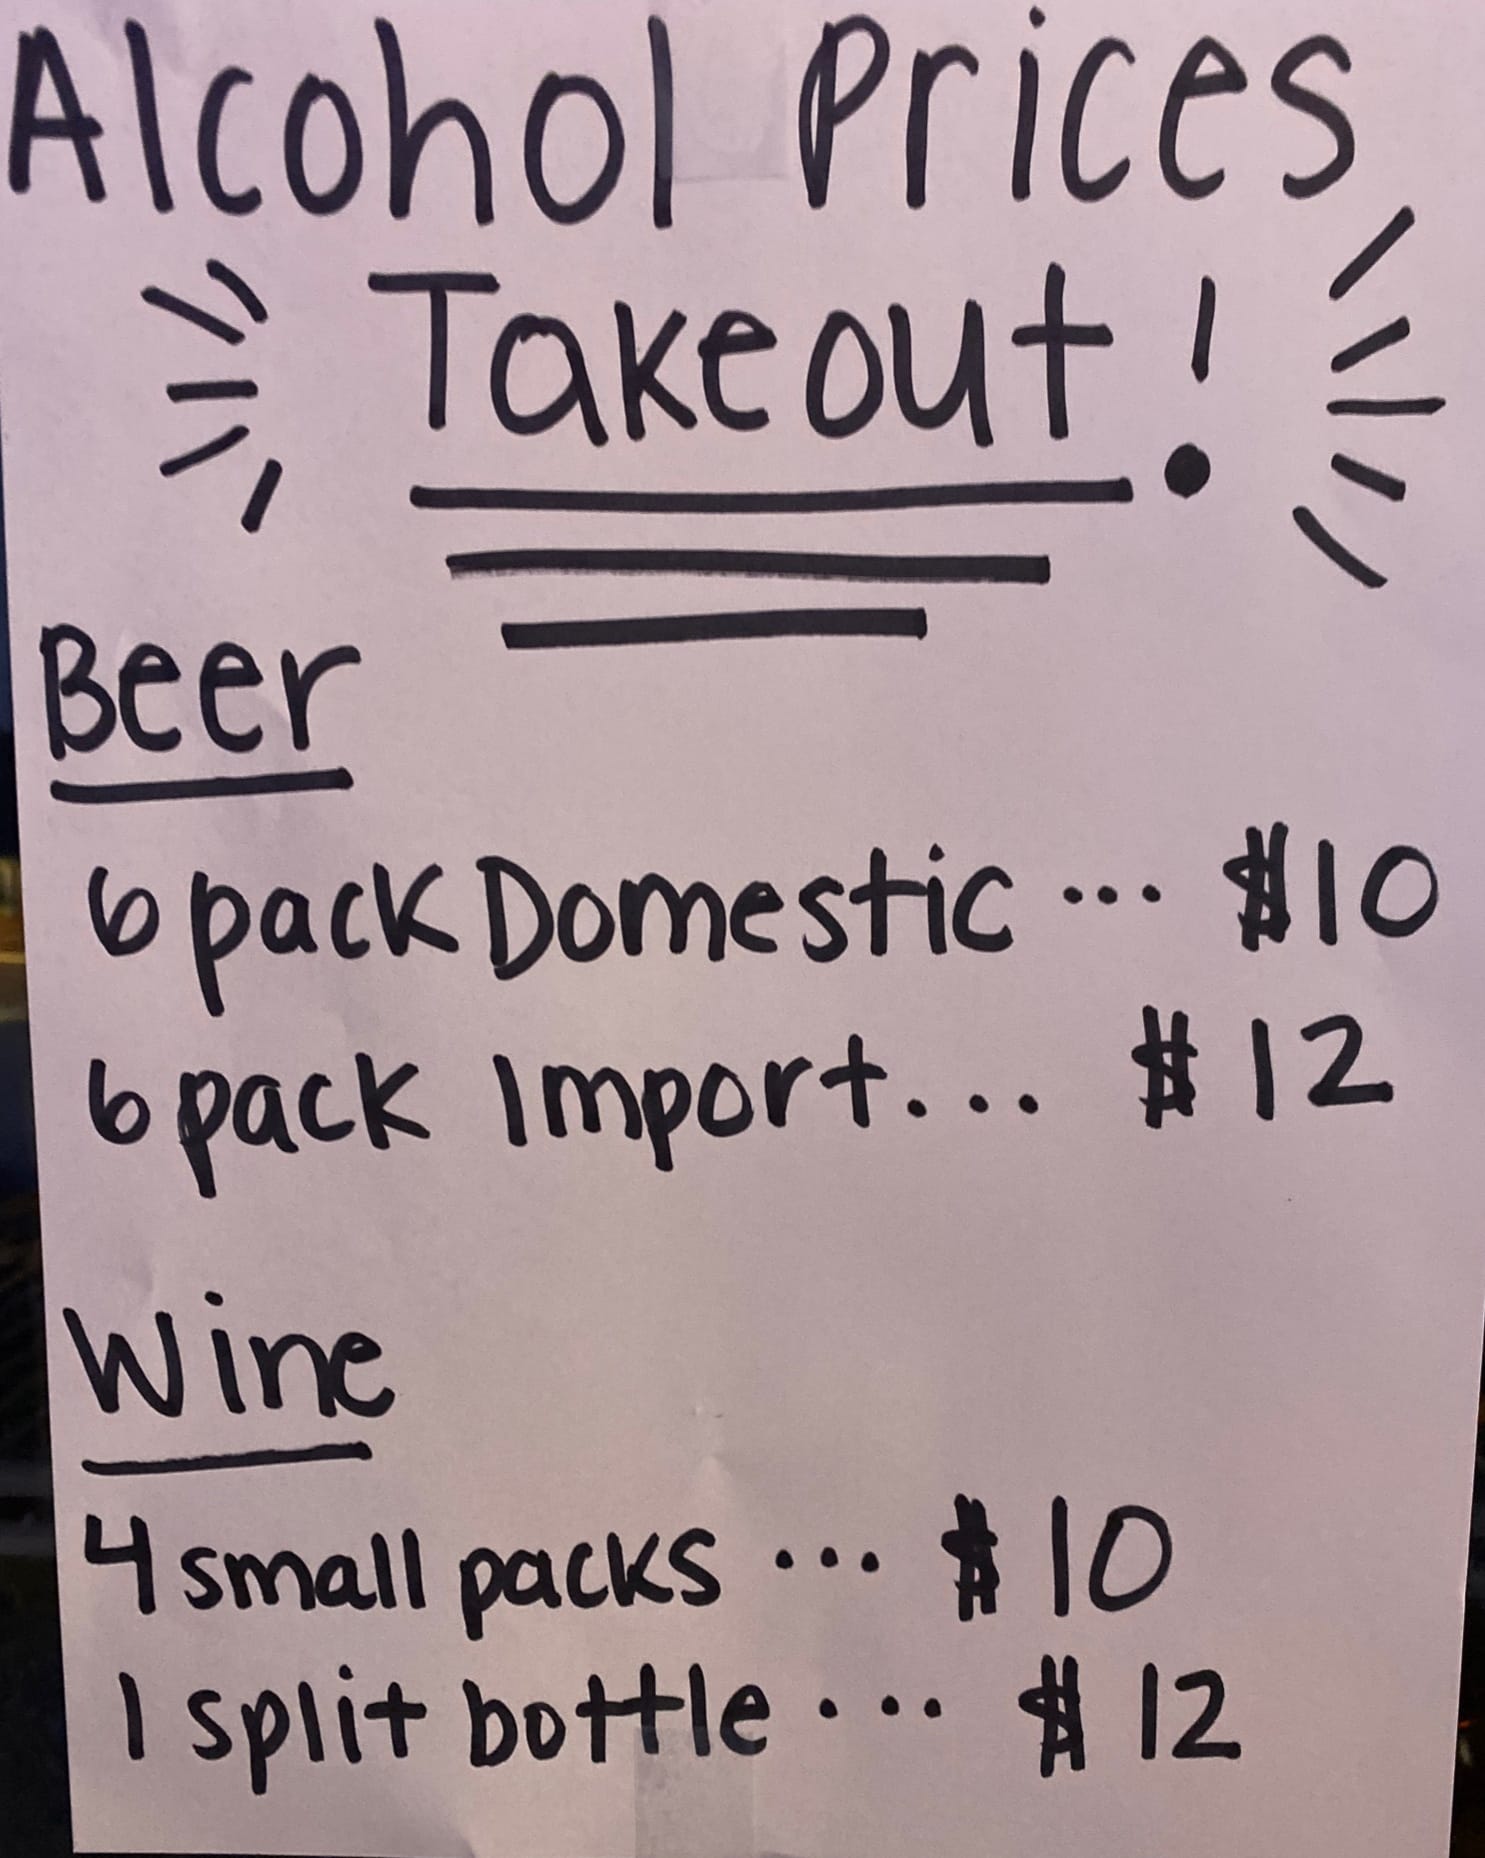 Alcohol Prices
Takeout!
Beer
6 pack Domestic ... $10
6 pack Import... $12
Wine
4 small packs ... $10
1 split bottle ... $12